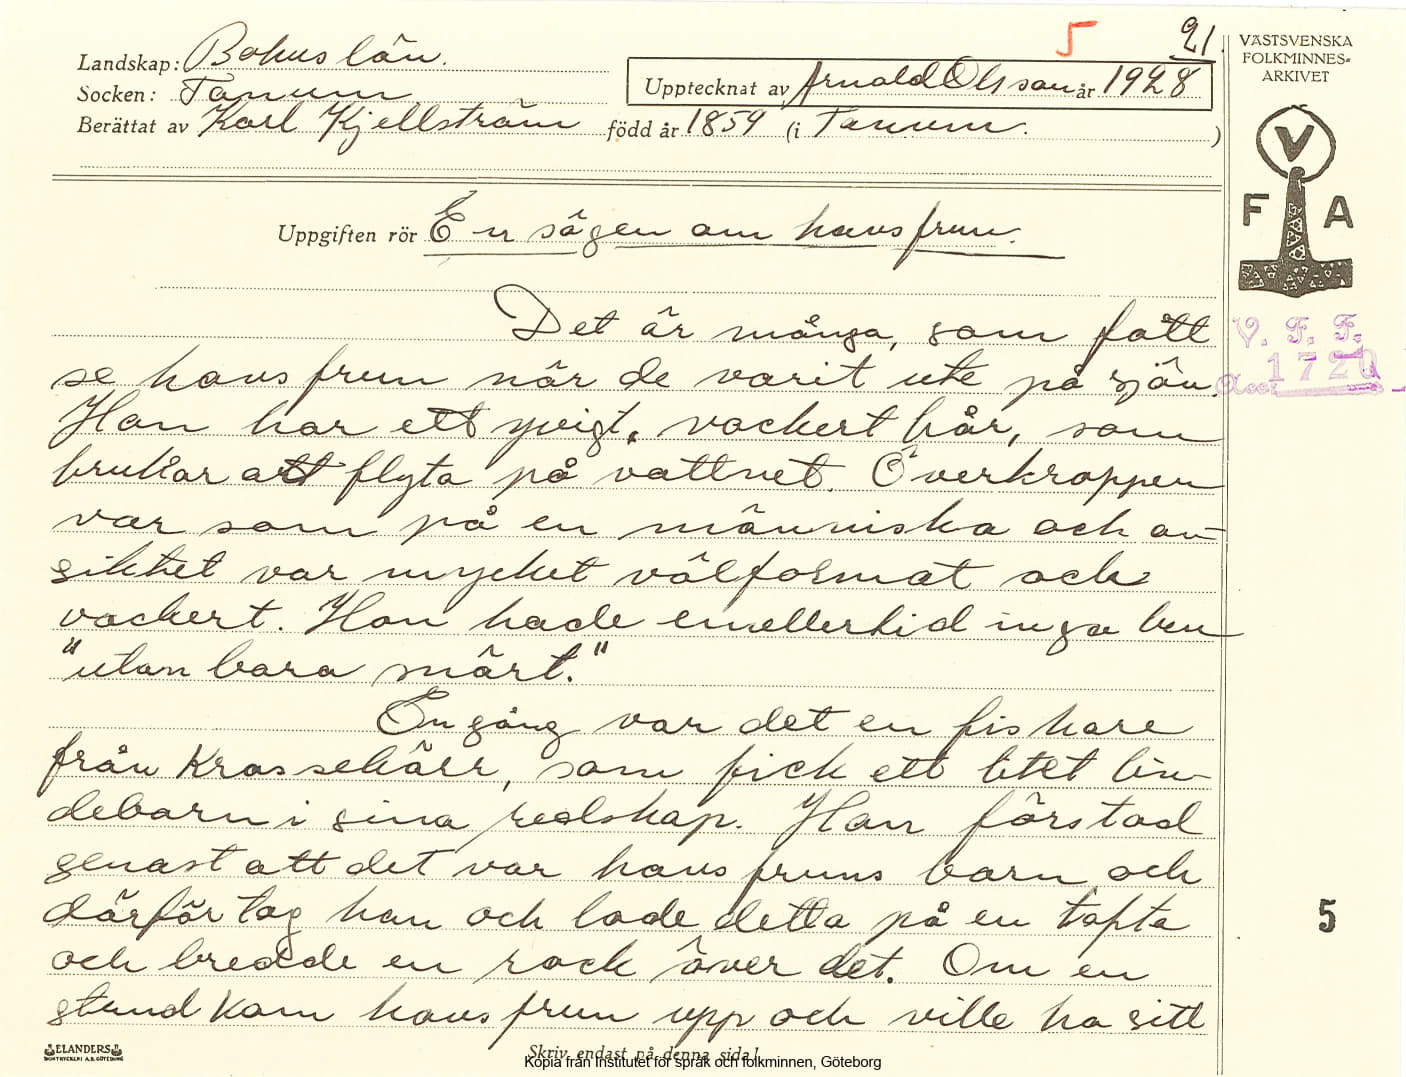 5 21.
VÄSTSVENSKA
FOLKMINNES-
ARKIVET
Landskap: Bohuslän.
Upptecknat av Arnold Olsson år 1928
Socken: Tanum
Berättat av Karl Kjellström född år 1859 (i Tanum. )
V
F A
Uppgiften rör En sägen om havsfrun.
Det är många, som fått
V. F. F.
se havsfrun när de varit ute på sjön.
Acc. 1720
Hon har ett yvigt, vackert hår, som
brukar att flyta på vattnet. Överkroppen
var som på en människa och an-
siktet var mycket välformat och
vackert. Hon hade emellertid inga ben
"utan bara snärt."
En gång var det en fiskare
från Krossekärr, som fick ett litet lin-
debarn i sina redskap. Han förstod
genast att det var havsfruns barn och
därför tog han och lade detta på en tofta
5
och bredde en rock över det. Om en
stund kom havsfrun upp och ville ha sitt
ELANDERS
BOKTRYCKERI A.B. GÖTEBORG
Skriv endast på denna sida!
Kopia från Institutet för språk och folkminnen, Göteborg